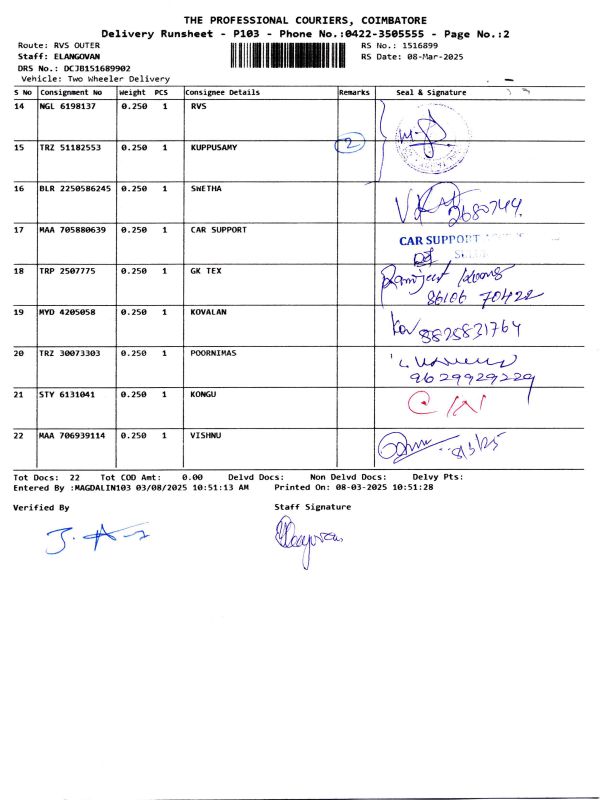 THE PROFESSIONAL COURIERS, COIMBATORE
Delivery Runsheet - P103 - Phone No.:0422-3505555 - Page No.:2
Route: RVS OUTER RS No.: 1516899
Staff: ELANGOVAN RS Date: 08-Mar-2025
DRS No.: DCJB151689902
Vehicle: Two Wheeler Delivery
S No Consignment No Weight PCS Consignee Details Remarks Seal & Signature
14 NGL 6198137 0.250 1 RVS
15 TRZ 51182553 0.250 1 KUPPUSAMY 2
16 BLR 2250586245 0.250 1 SWETHA
17 MAA 705880639 0.250 1 CAR SUPPORT CAR SUPPORT
18 TRP 2507775 0.250 1 GK TEX
86106 70422
19 MYD 4205058 0.250 1 KOVALAN Kov 8825831764
20 TRZ 30073303 0.250 1 POORNIMAS
9629929229
21 STY 6131041 0.250 1 KONGU
22 MAA 706939114 0.250 1 VISHNU 8/3/25
Tot Docs: 22 Tot COD Amt: 0.00 Delvd Docs: Non Delvd Docs: Delvy Pts:
Entered By :MAGDALIN103 03/08/2025 10:51:13 AM Printed On: 08-03-2025 10:51:28
Verified By Staff Signature